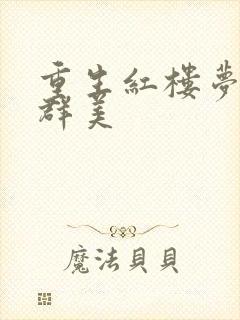 重生紅樓夢
群美
魔法貝貝